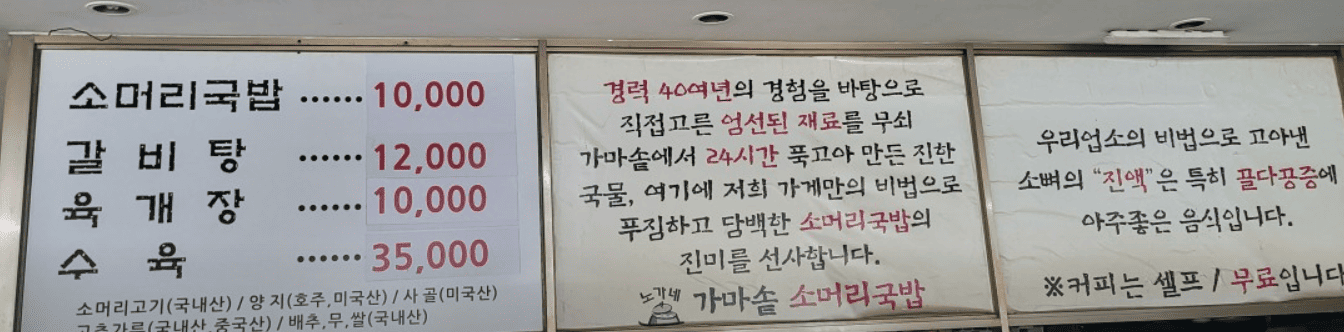 소머리국밥 ...... 10,000
갈 비 탕 ...... 12,000
육 개 장 ...... 10,000
수 육 ...... 35,000
소머리고기(국내산) / 양 지(호주,미국산) / 사 골(미국산)
고추가루(국내산,중국산) / 배추,무,쌀(국내산)
경력 40여년의 경험을 바탕으로
직접고른 엄선된 재료를 무쇠
가마솥에서 24시간 푹고아 만든 진한
국물, 여기에 저희 가게만의 비법으로
푸짐하고 담백한 소머리국밥의
진미를 선사합니다.
노가네 가마솥 소머리국밥
우리업소의 비법으로 고아낸
소뼈의 "진액"은 특히 끌다공증에
아주좋은 음식입니다.
※커피는 셀프 / 무료입니다